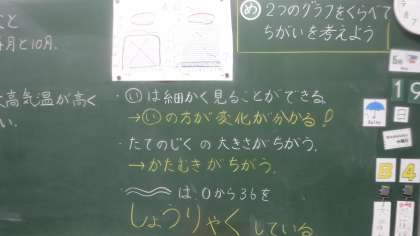 こと
月と10月.
め 2つのグラフをくらべて
ちがいを考えよう
高気温が高く
い.
・いは細かく見ることができる
→いの方が変化がわかる!
・たてのじくの大きさがちがう.
→かたむきがちがう.
・は、0から36を
しょうりゃくしている
19
日
B4